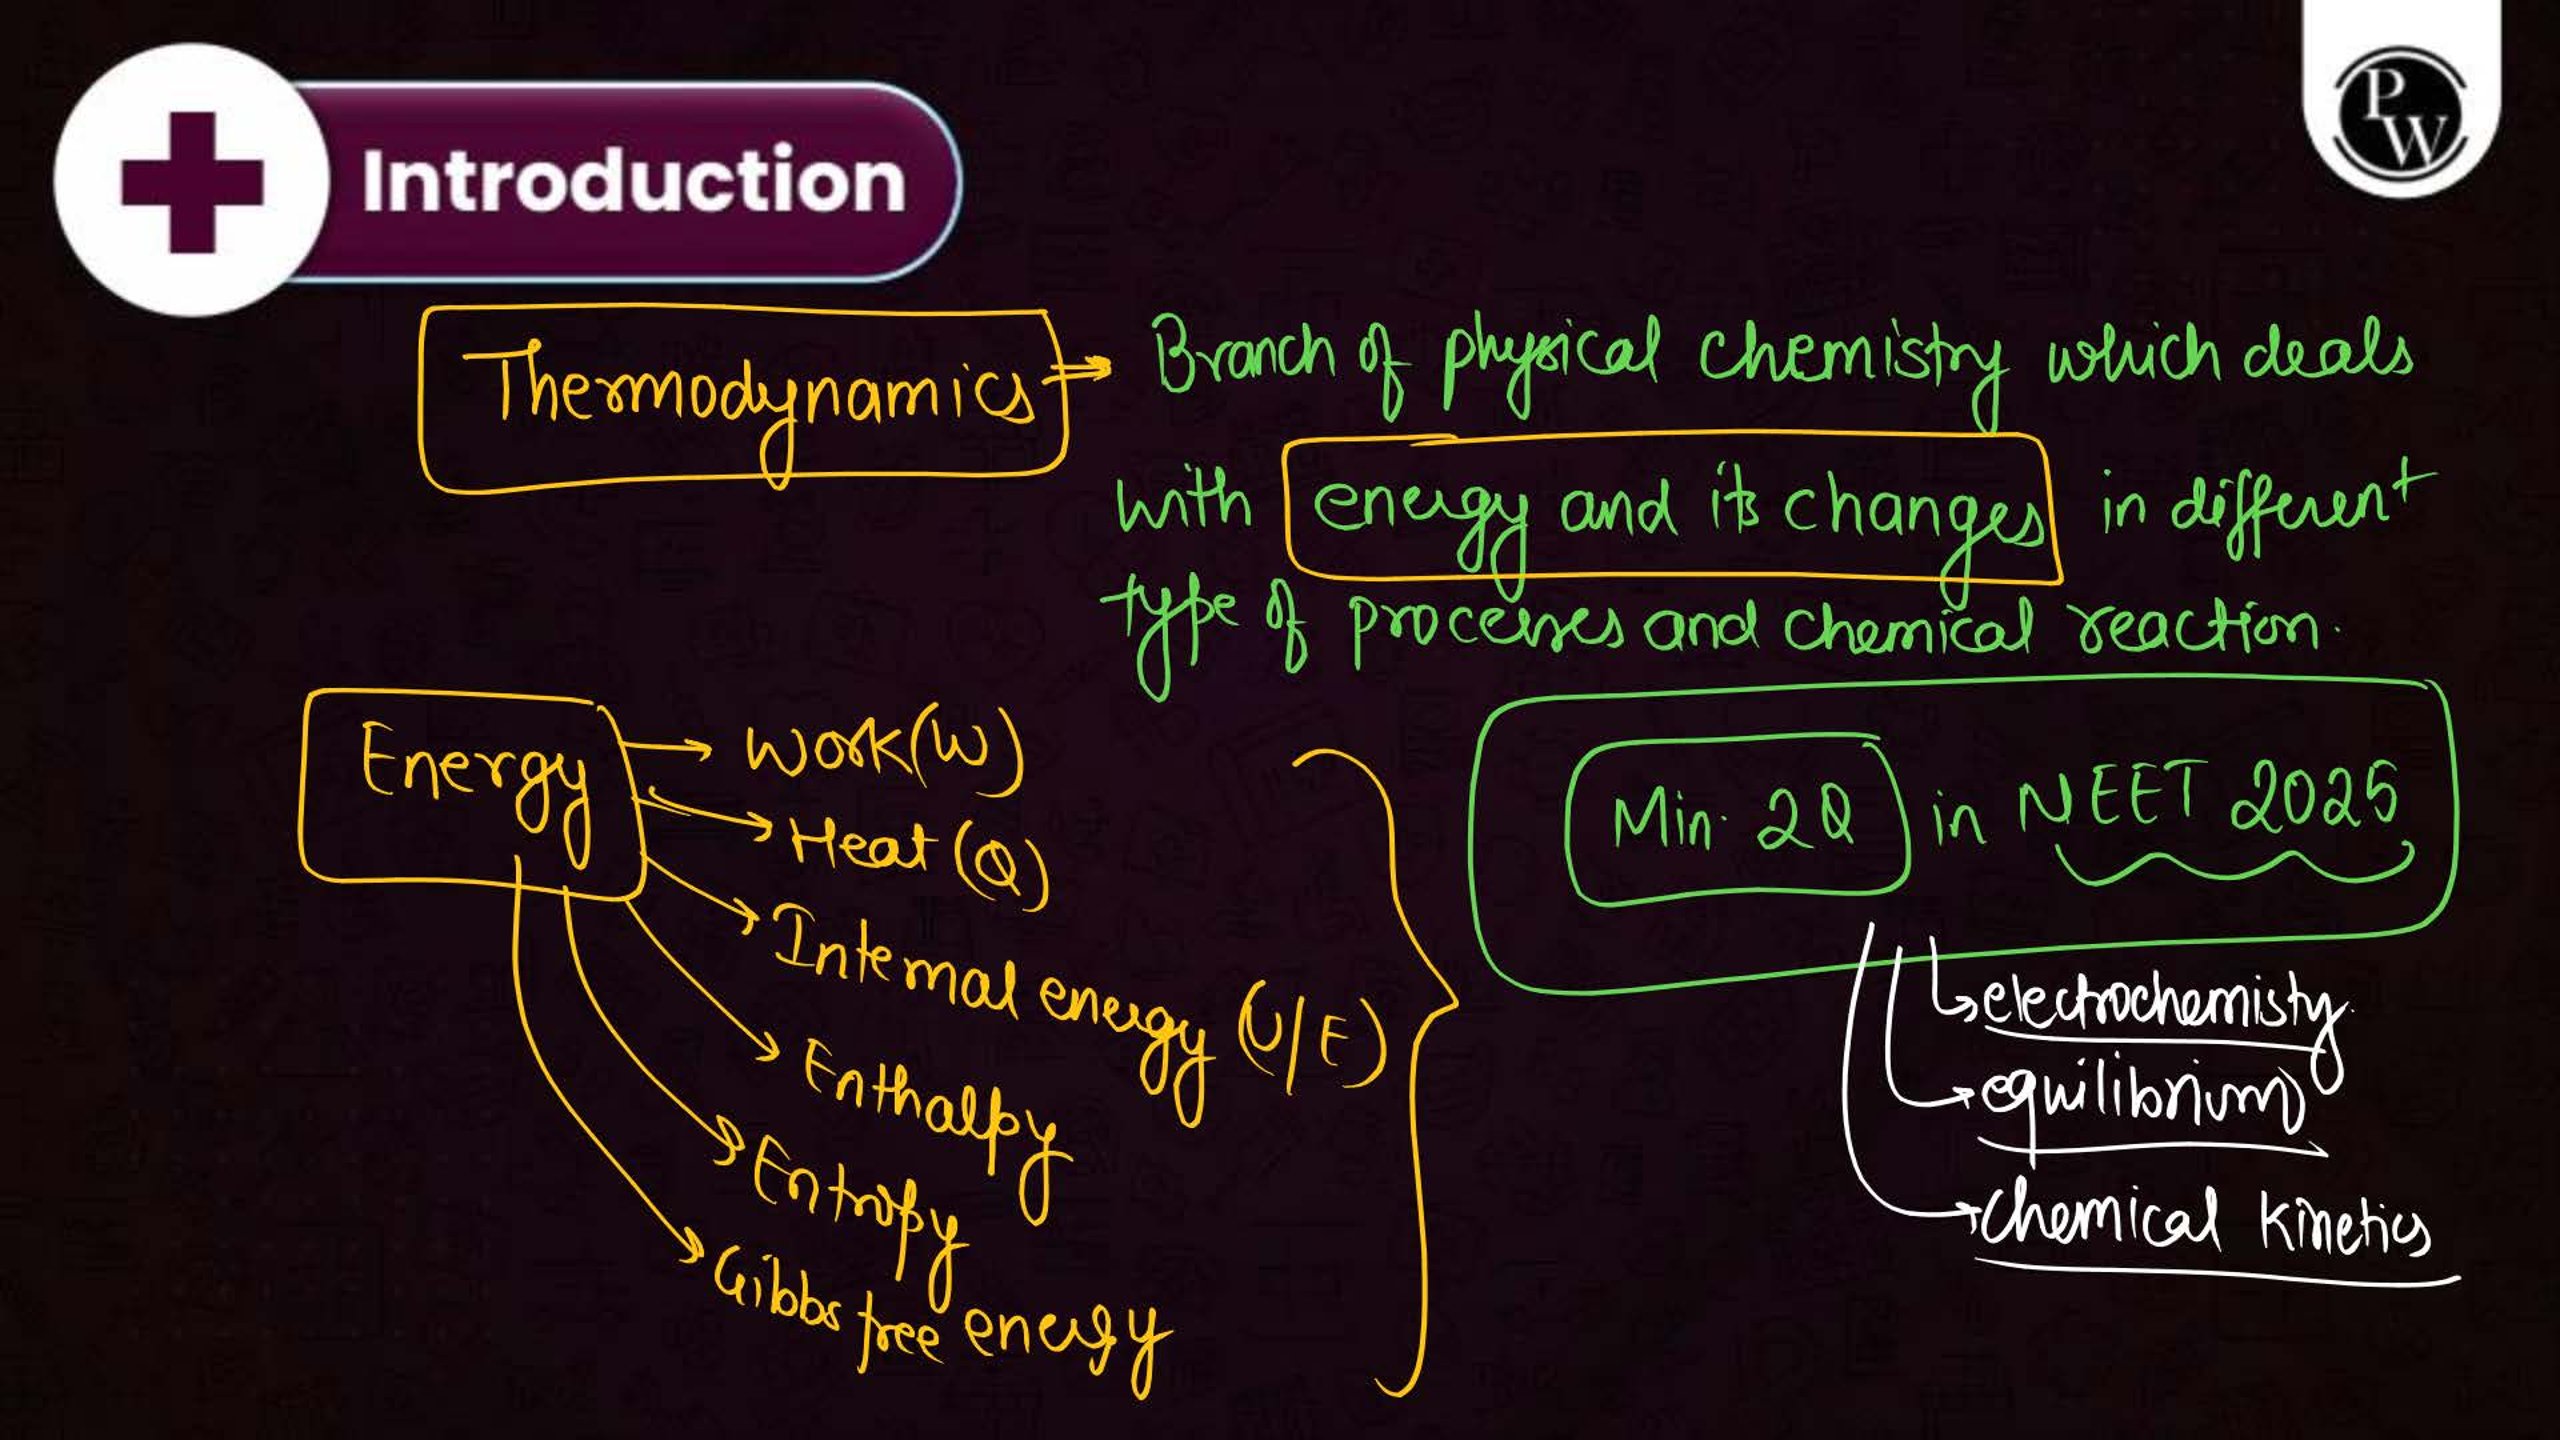 Introduction
PW
Thermodynamics → Branch of physical chemistry which deals
with energy and its changes in different
type of processes and chemical reaction.
Energy
→ Work (W)
→ Heat (Q)
→ Internal energy (U/E)
→ Enthalpy
→ Entropy
→ Gibbs free energy
Min. 2Q in NEET 2025
→ electrochemisty
→ equilibrium
→ chemical kinetics